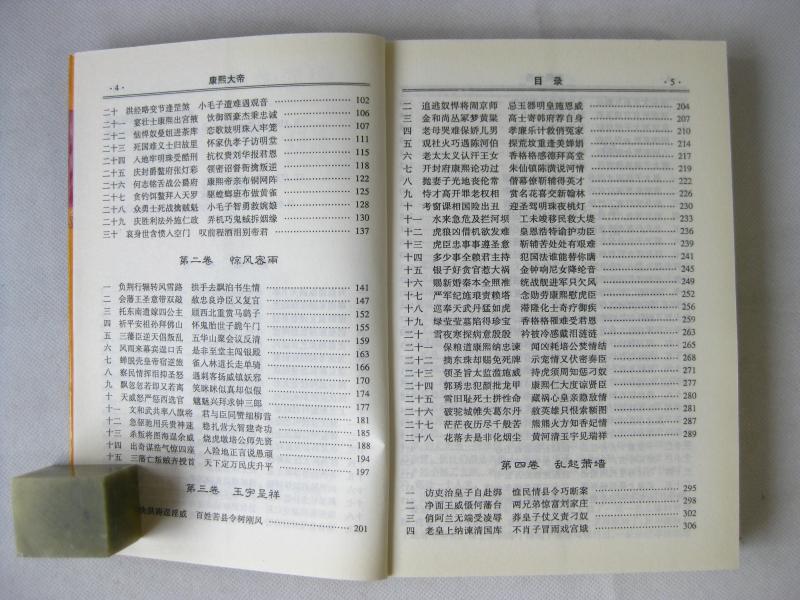 ·4· 康熙大帝
二十 洪经略变节逢罡煞 小毛子遭难遇观音 102
二十一 宴壮士康熙出宫掖 饮御酒豪杰秉忠诚 106
二十二 恼悍奴曼姐进茶库 恋歌妓明珠入牢笼 107
二十三 死国难义士归故里 怀家仇孝子访明堂 111
二十四 入地牢明珠受酷刑 抗权贵刘华报君恩 115
二十五 庆封爵鳌府张灯彩 领密诏督衙擒叛逆 118
二十六 何志铭舌战公爵府 康熙帝亲布铜网阵 122
二十七 贪钓饵鳌拜入天罗 驱螳螂班布做黄雀 125
二十八 众勇士死战擒贼魁 小毛子智勇救婉娘 128
二十九 庆胜利法外施仁政 弄机巧鬼蜮拆姻缘 130
三十 哀身世含愤入空门 叹前程洒泪别帝君 137
第二卷 惊风密雨
一 负荆行辗转风雪路 拱手去飘泊书生情 141
二 会藩王圣意带双敲 赦忠良诤臣又复官 147
三 托东南遣嫁四公主 顾西北重赏马鹞子 149
四 祈平安祖孙拜佛山 怀鬼胎世子跪午门 151
五 三藩臣逆天倡叛乱 五华山聚会议反清 155
六 风雨来幕宾逞口舌 是非至堂主闯银殿 161
七 蝉脱壳皇帝宿逆旅 雀人林道长走单骑 166
八 察民情挥组抑圣怒 遇刺客扬威镇妖邪 170
九 飘忽忽若即又若离 笑眯眯似真却似假 174
十 天威怒严惩西选官 魑魅兴拜求钟三郎 177
十一 文和武共率八旗将 君与臣同赞细柳营 181
十二 急驱驰用兵贵神速 稳扎营大智建奇功 187
十三 杀叛将图海温余威 烧虎墩培公师先贤 190
十四 出奇谋浩气惊四座 入险地正言说愚顽 194
十五 三藩亡叛贼齐授首 天下定万民庆升平 197
第三卷 玉宇呈祥
百姓苦县令树刚风 201
目录 ·5·
二 追逃奴悍将闹京师 忌王器明皇施恩威 204
三 金和尚丛冢梦黄粱 高士寄韩府荐自身 207
四 老母哭难保娇儿男 孝廉乐计救俏冤家 210
五 观社火巧遇陈河伯 探荒坟重逢美婵娟 214
六 老太太义认汗王女 香格格感德拜高堂 217
七 开封府康熙论功过 朱仙镇陈潢说河情 219
八 抛妻子光地丧伦常 僭幕僚靳辅得英才 221
九 恃才高开罪老权相 赏名花喜交新翰林 223
十 考窗课相国险出丑 迎圣驾明珠夜桃灯 230
十一 水来急危及拦河坝 工未竣移民救大堤 233
十二 虎狼凶借机欲发难 皇恩浩特谕护功臣 236
十三 虎臣忠事事遵圣意 靳辅苦处处有艰难 239
十四 多少事全赖君主持 犯国法谁能替你瞒 241
十五 银子好贪官惹大祸 金钟响尼女降纶音 244
十六 赐新婚秦本全照准 统战舰进军只欠风 247
十七 严军纪施琅责赖塔 念勋劳康熙慰虎臣 250
十八 巡奉天武丹猛如虎 滞隆化士奇疗御疾 253
十九 绿莹莹墓陷得珍宝 香格格罹难受君恩 258
二十 雪夜寒探病意殷殷 衿被冷感戴泪涟涟 263
二十一 保粮道康熙纳忠谏 闻凶耗培公焚情结 265
二十二 摘东珠却赐免死牌 示宠情又优密奏臣 268
二十三 领圣旨太监滥施威 持虎须周知惩刁奴 274
二十四 郭琇忠犯颜批龙甲 康熙仁大度谅贤臣 276
二十五 雪旧耻死士拼性命 藏祸心皇亲隐敌情 280
二十六 破驼城帷失葛尔丹 赦英雄月恨索额图 282
二十七 茫茫夜历尽千般苦 熊熊火方知香妃情 287
二十八 花落去是非化烟尘 黄河清玉宇见瑞祥 289
第四卷 乱起萧墙
一 访吏治皇子自赴绑 惟民情县令巧断案 295
二 净面王威慑何藩台 两兄弟惊富刘家庄 298
三 俏阿兰无端受凌辱 莽皇子仗义责刁奴 302
四 老皇上纳谏清国库 不肖子冒雨戏宫娥 306